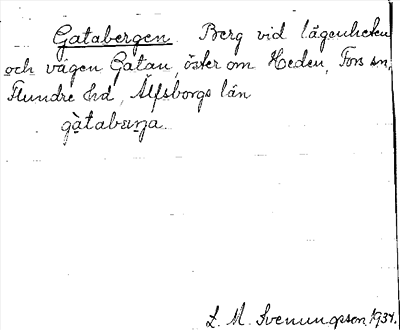 Gatabergen. Berg vid lägenheten
och vägen Gatan, öster om Heden, Fors sn,
Flundre hd, Älfsborgs län
gàtabærja
L. M. Svenungsson 1934.